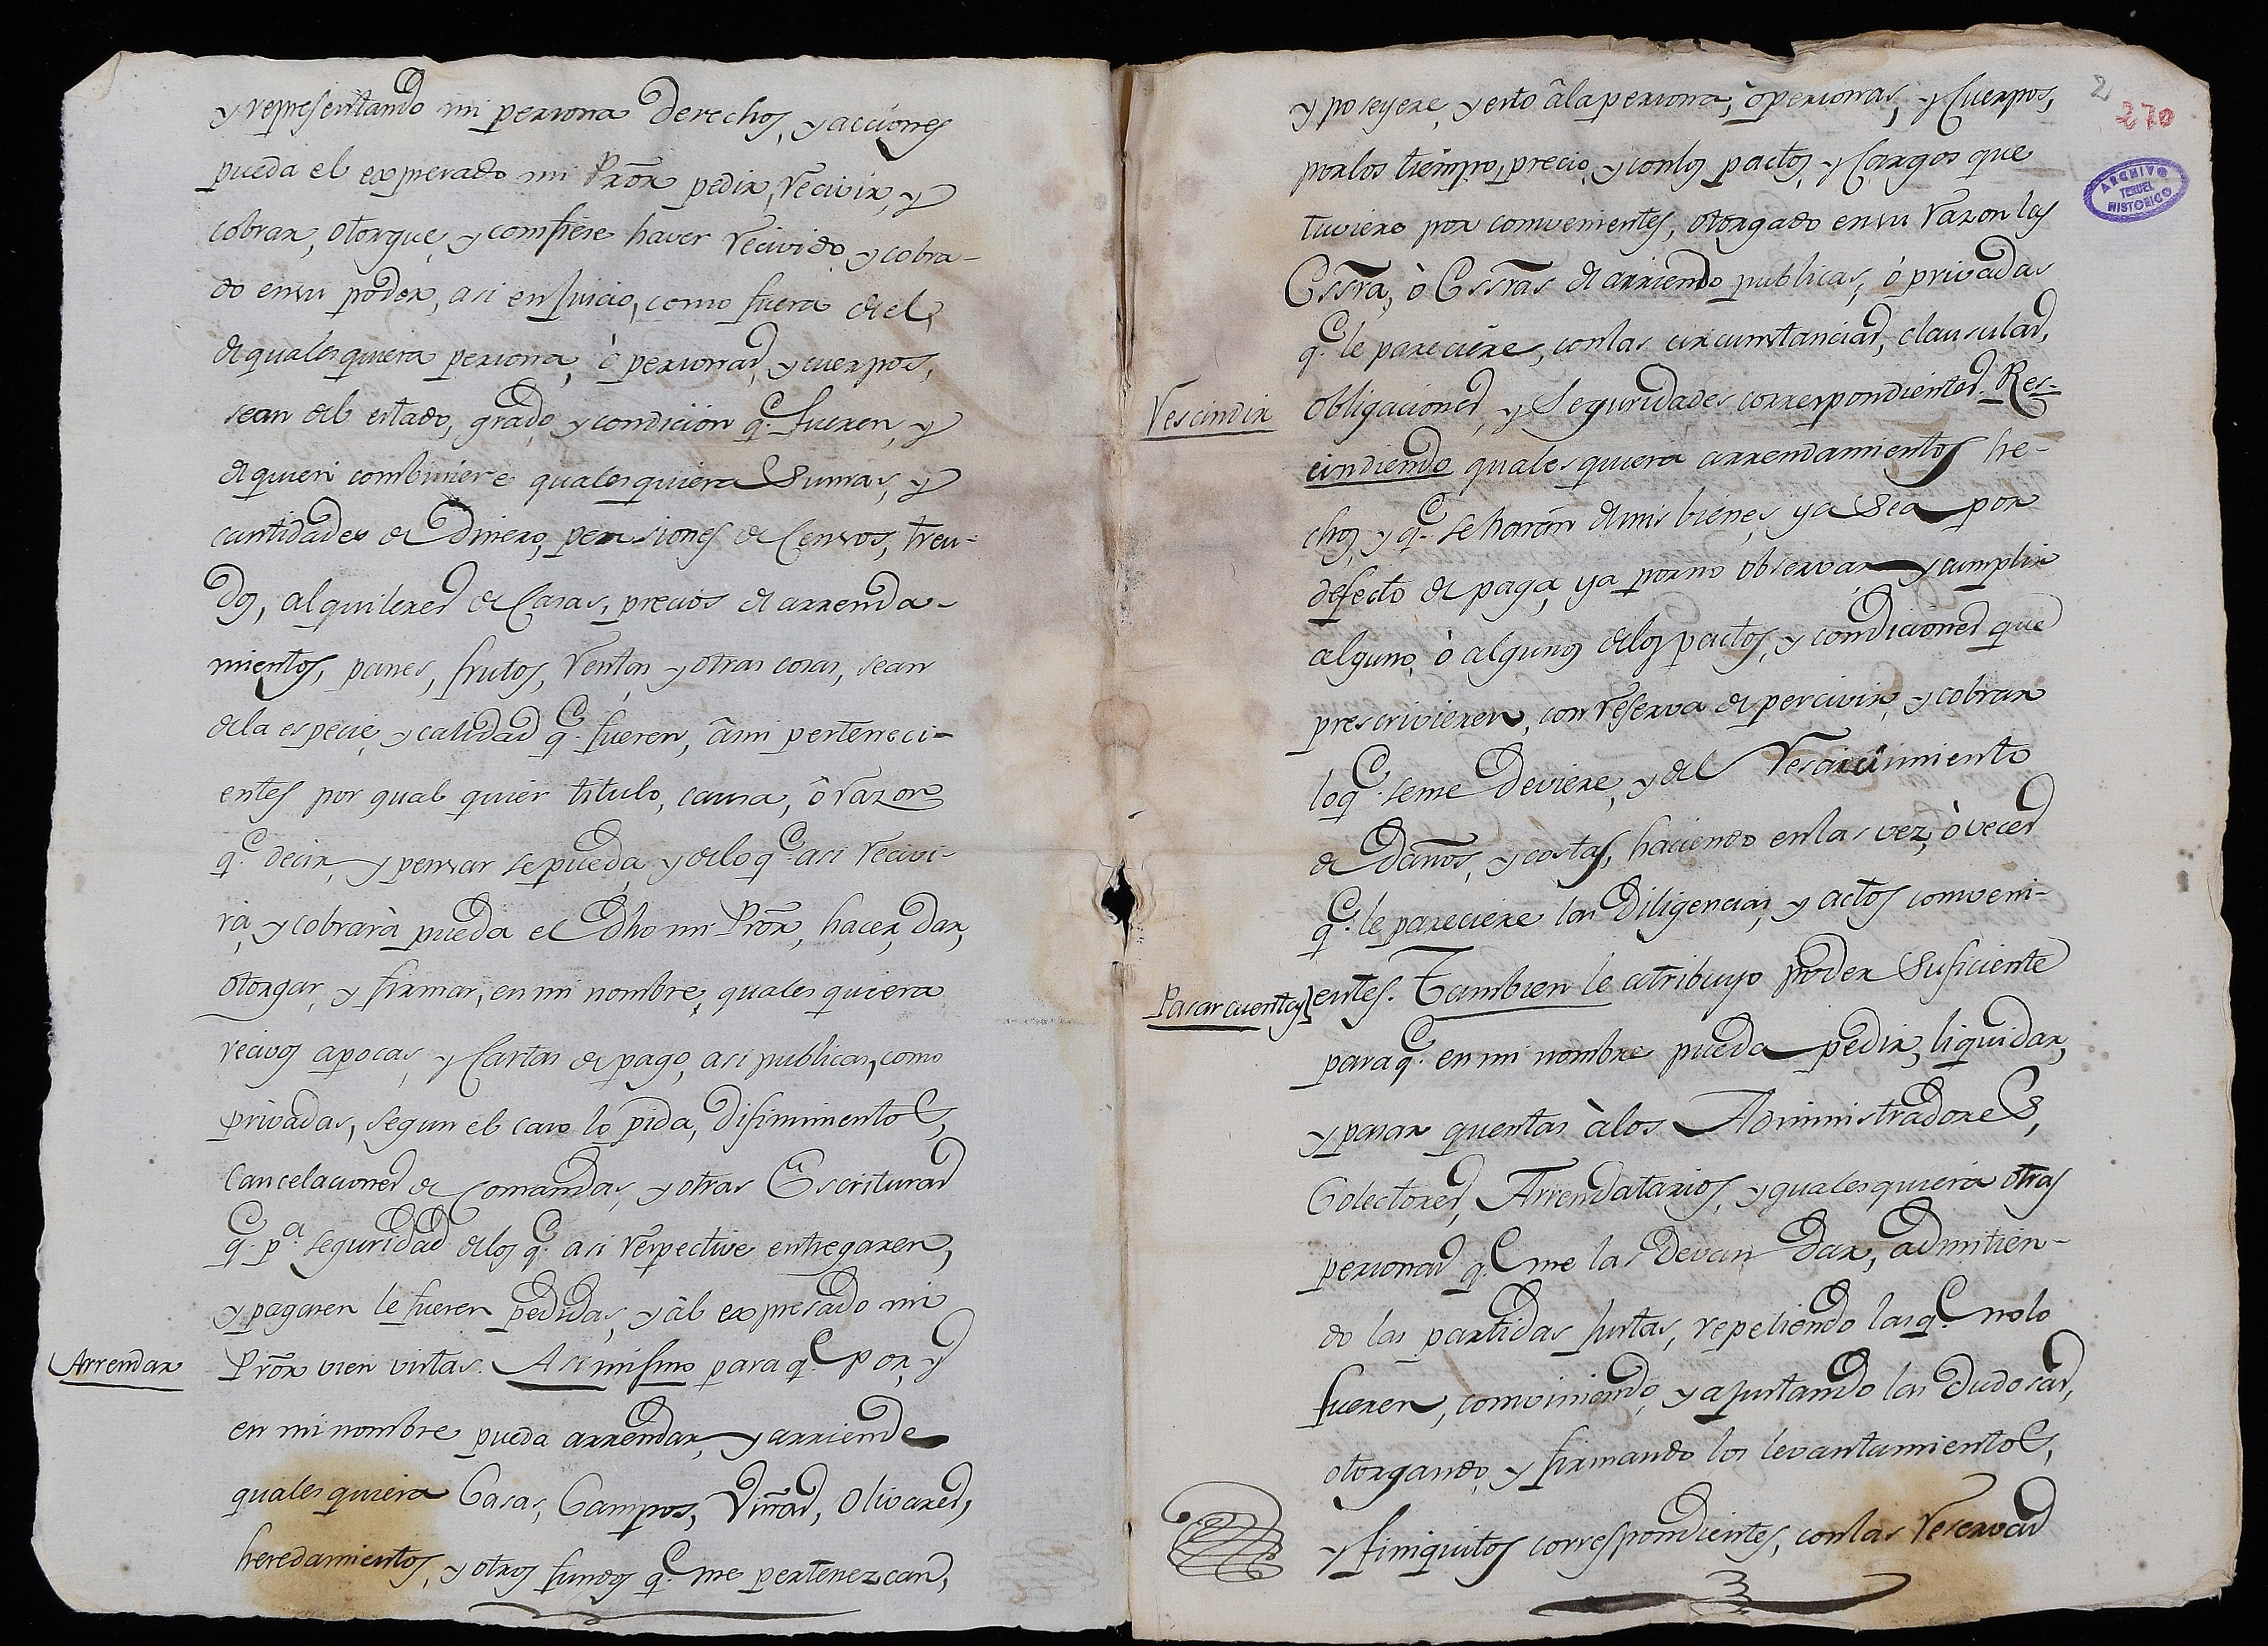 y representando mi persona derechos, y acciones
pueda el expresado mi Pror̃ pedir, recivir, y
cobrar, otorgue, y confiese haver recivido, y cobra-
do en su poder, asi en Juicio, como fuera de el,
de qualesquiera persona, ò personas, y cuerpos,
sean del estado, grado, y condicion q.e fueren, y
de quien combiniere qualesquiera Sumas, y
cantidades de Dinero, pensiones de Censos, treu-
dos, alquileres de Casas, precios de arrenda-
mientos, panes, frutos, ventas, y otras cosas, sean
de la especie, y calidad q.e fueren, â mi perteneci-
entes por qual quier titulo, causa, ô razon
q.e decir, y pensar se pueda, y de lo q.e asi recivi-
rà, y cobrarà pueda el Dho mi Pror̃, hacer, dar,
otorgar, y firmar, en mi nombre, quales quiera
recivos apocas, y Cartas de pago, asi publicas, como
privadas, segun el caso lo pida, difinimientos,
Cancelaciones de Comandas, y otras Escrituras
q.e p.a seguridad de los q.e asi respective entregaren,
y pagaren le fueren pedidas, y àl expresado mi
Arrendar
Pror̃ vien vistas. Asi mismo para q.e por, y
en mi nombre pueda arrendar, y arriende
quales quiera Casas, Campos, Viñas, Olivares,
heredamientos, y otros fundos q.e me pertenezcan,
2
270
ARCHIVO
TERUEL
HISTORICO
y poseyere, y esto â la persona, ò personas, y Cuerpos,
por los tiempo, precio, y con los pactos, y Cargos que
tuviere por convenientes, otorgado en su razon las
Essr̃a, ò Essr̃as de arriendo publicas, ò privadas
q.e le pareciere, con las circunstancias, clausulas,
Rescindir
obligaciones, y Seguridades correspondientes. Res-
cindiendo quales quiera arrendamientos he-
chos, y q.e se harán de mis bienes, ya sea por
defecto de paga, ya por no observar, y cumplir
alguno, ò algunos de los pactos, y condiciones que
prescrivieren, con reserva de percivir, y cobrar
lo q.e se me deviere, y del Resarcimiento
de Daños, y costas, haciendo en las vez, ò veces
q.e le pareciere las Diligencias, y actos conveni-
Pasar cuentas
entes. Tambien le atribuyo poder Suficiente
para q.e en mi nombre pueda pedir, liquidar,
y pasar quentas à los Administradores,
Colectores, Arrendatarios, y qualesquiera otras
personas q.e me las Devan Dar, admitien-
do las partidas Justas, repeliendo las q.e no lo
fueren, conviniendo, y ajustando las Dudosas,
otorgando, y firmando los levantamientos,
y finiquitos correspondientes, con las reservas